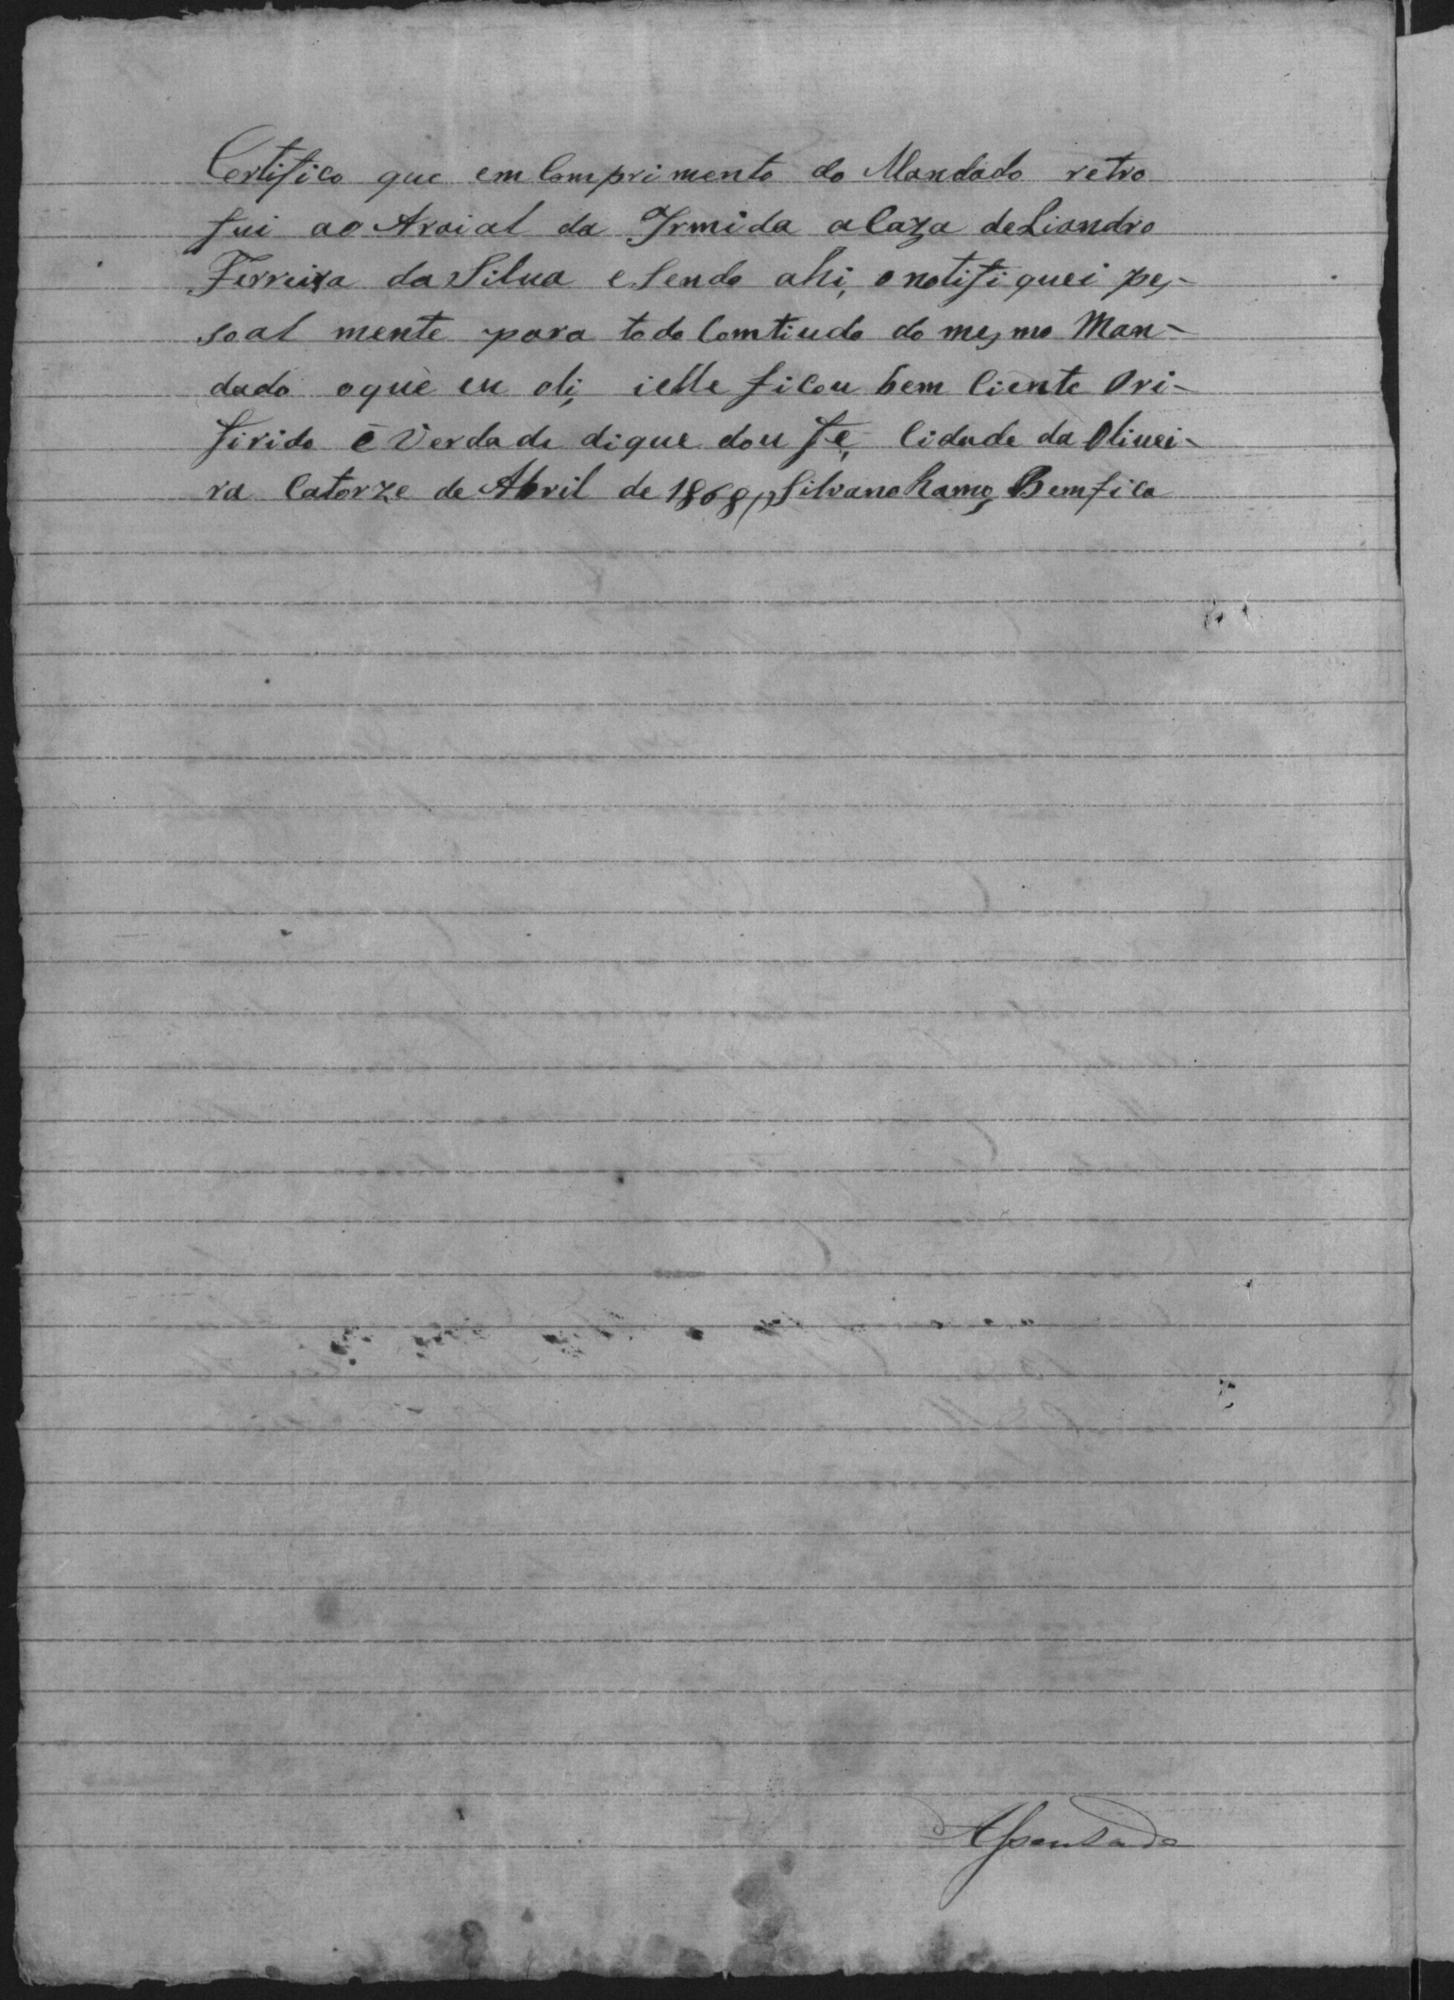 Certifico que em Comprimento do Mandado retro
fui ao Araial da Irmida a Caza de Liandro
Ferreira da Silva e Sendo ahi, o notifiquei pes-
soal mente para todo Comtiudo do mesmo Man-
dado o que eu oli, i elle ficou bem Ciente O ri-
firido é Verdade di que dou fé, Cidade da Olivei-
ra Catorze de Abril de 1868 Silvano Ramos Bemfica
Apensado